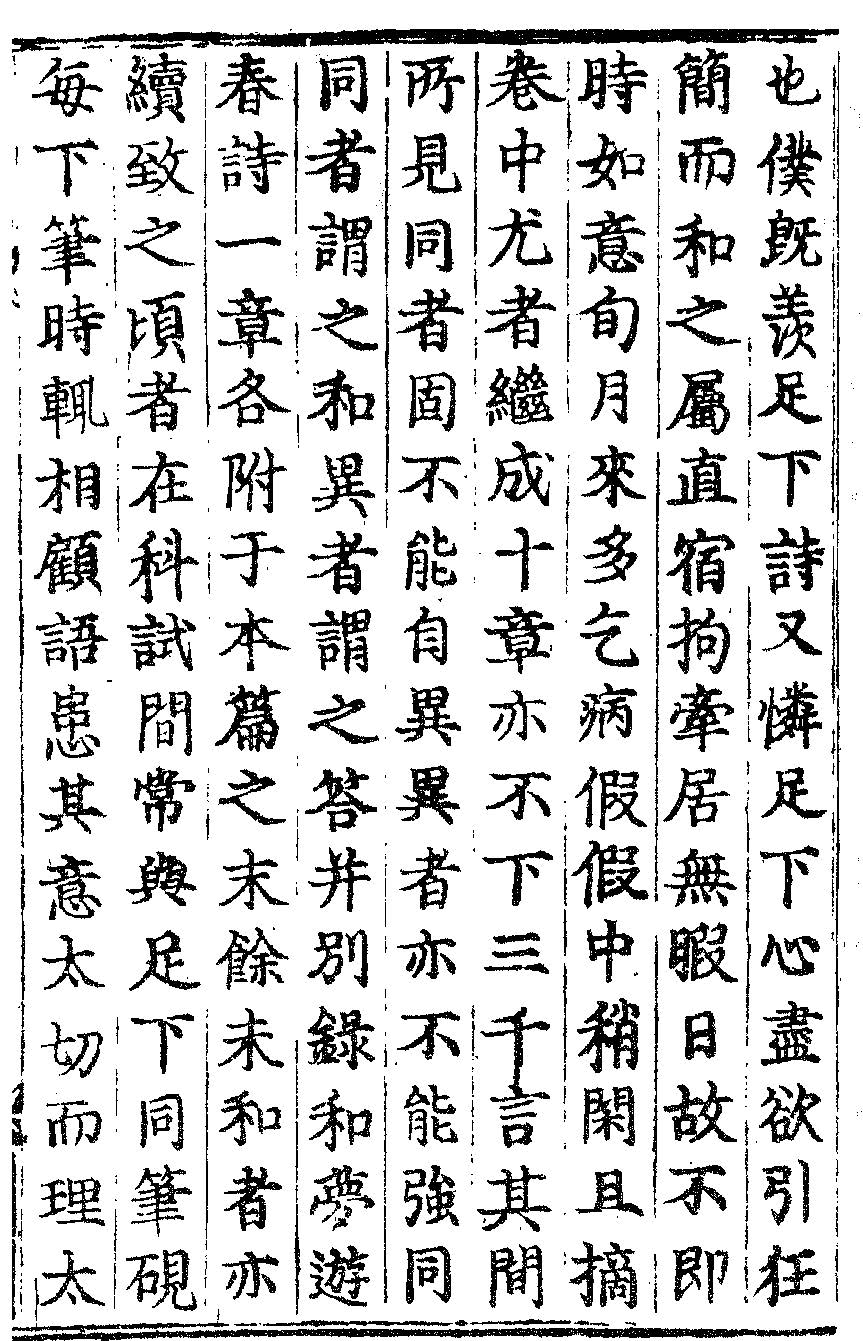 也僕旣羨足下詩又憐足下心盡欲引狂
簡而和之屬直宿拘牽居無暇日故不即
時如意旬月來多乞病假假中稍閑且摘
卷中尤者繼成十章亦不下三千言其間
所見同者固不能自異異者亦不能強同
同者謂之和異者謂之答并別錄和夢遊
春詩一章各附于本篇之末餘未和者亦
續致之頃者在科試間常與足下同筆硯
每下筆時輒相顧語患其意太切而理太